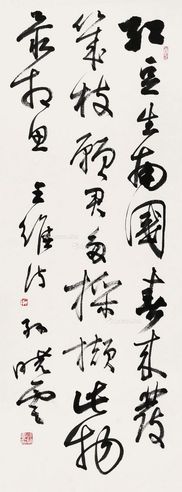 红豆生南国春来发
几枝愿君多采撷此物
最相思 王维诗 孙晓云